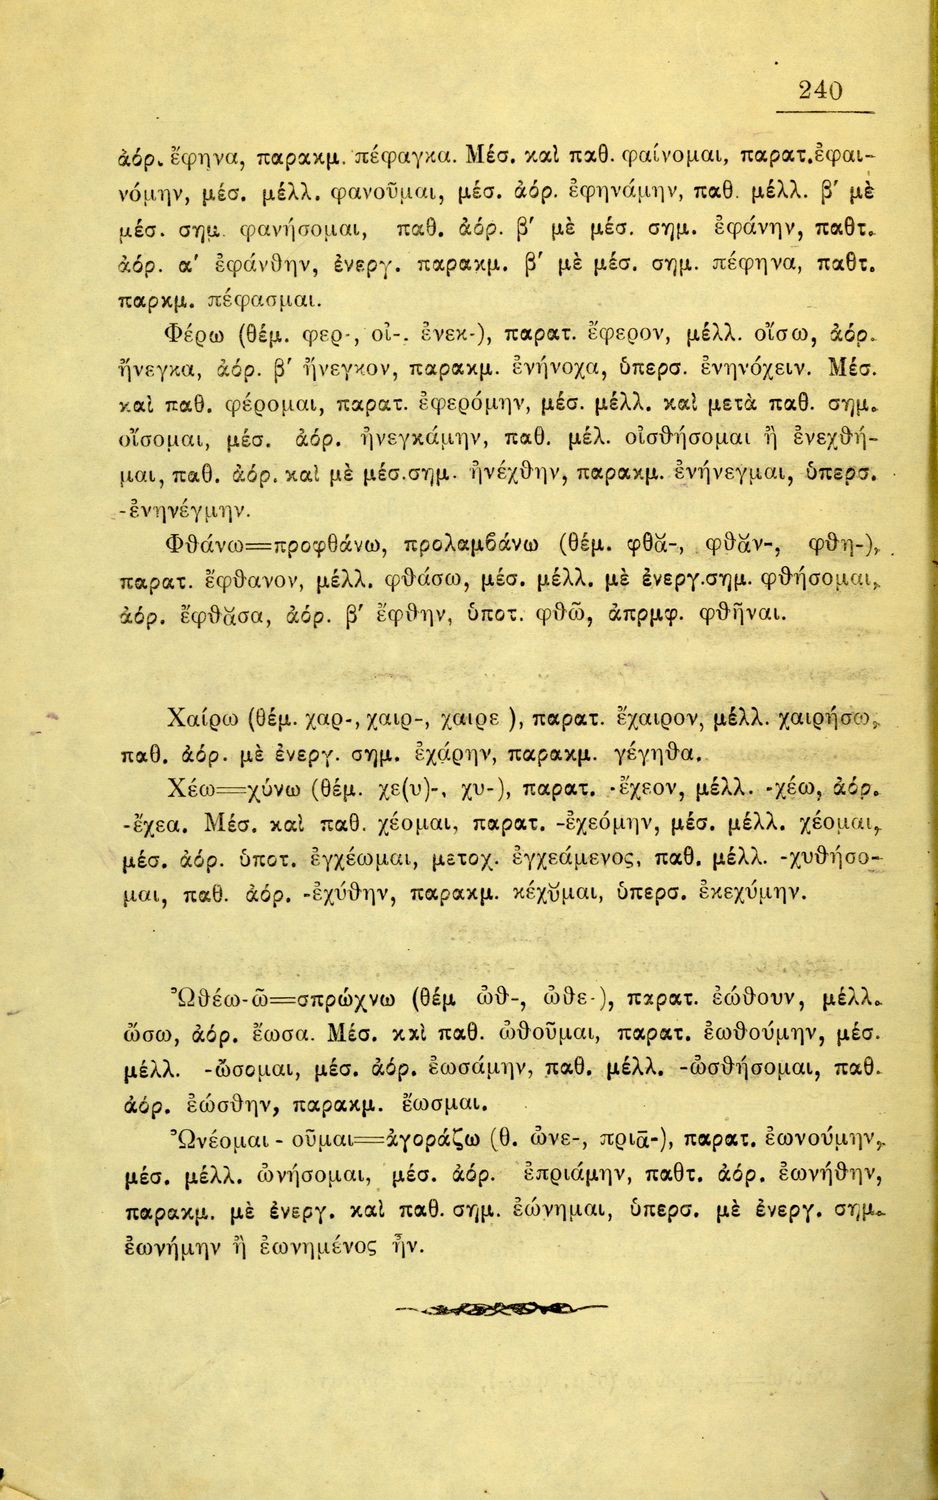 240
ἀόρ. ἔφηνα, παρακμ. πέφαγκα. Μέσ. καὶ παθ. φαίνομαι, παρατ. ἐφαι-
νόμην, μέσ. μέλλ. φανοῦμαι, μέσ. ἀόρ. ἐφηνάμην, παθ. μέλλ. β′ μὲ
μέσ. σημ. φανήσομαι, παθ. ἀόρ. β′ μὲ μέσ. σημ. ἐφάνην, παθτ.
ἀόρ. α′ ἐφάνθην, ἐνεργ. παρακμ. β′ μὲ μέσ. σημ. πέφηνα, παθτ.
παρκμ. πέφασμαι.
Φέρω (θέμ. φερ-, οἰ-. ἐνεκ-), παρατ. ἔφερον, μέλλ. οἴσω, ἀόρ.
ἤνεγκα, ἀόρ. β′ ἤνεγκον, παρακμ. ἐνήνοχα, ὑπερσ. ἐνηνόχειν. Μέσ.
καὶ παθ. φέρομαι, παρατ. ἐφερόμην, μέσ. μέλλ. καὶ μετὰ παθ. σημ.
οἴσομαι, μέσ. ἀόρ. ἠνεγκάμην, παθ. μέλ. οἰσθήσομαι ἢ ἐνεχθή-
μαι, παθ. ἀόρ. καὶ μὲ μέσ. σημ. ἠνέχθην, παρακμ. ἐνήνεγμαι, ὑπερσ.
-ἐνηνέγμην.
Φθάνω=προφθάνω, προλαμβάνω (θέμ. φθᾰ-, φθᾰν-, φθη-),
παρατ. ἔφθανον, μέλλ. φθάσω, μέσ. μέλλ. μὲ ἐνεργ. σημ. φθήσομαι,
ἀόρ. ἔφθᾰσα, ἀόρ. β′ ἔφθην, ὑποτ. φθῶ, ἀπρμφ. φθῆναι.
Χαίρω (θέμ. χαρ-, χαιρ-, χαιρε ), παρατ. ἔχαιρον, μέλλ. χαιρήσω,
παθ. ἀόρ. μὲ ἐνεργ. σημ. ἐχάρην, παρακμ. γέγηθα.
Χέω=χύνω (θέμ. χε(υ)-, χυ-), παρατ. -ἔχεον, μέλλ. -χέω, ἀόρ.
-ἔχεα. Μέσ. καὶ παθ. χέομαι, παρατ. -ἐχεόμην, μέσ. μέλλ. χέομαι,
μέσ. ἀόρ. ὑποτ. ἐγχέωμαι, μετοχ. ἐγχεάμενος, παθ. μέλλ. -χυθήσο-
μαι, παθ. ἀόρ. -ἐχύθην, παρακμ. κέχῠμαι, ὑπερσ. ἐκεχύμην.
Ὠθέω-ῶ=σπρώχνω (θέμ ὠθ-, ὠθε-), παρατ. ἐώθουν, μέλλ.
ὤσω, ἀόρ. ἔωσα. Μέσ. καὶ παθ. ὠθοῦμαι, παρατ. ἐωθούμην, μέσ.
μέλλ. -ὤσομαι, μέσ. ἀόρ. ἐωσάμην, παθ. μέλλ. -ὠσθήσομαι, παθ.
ἀόρ. ἐώσθην, παρακμ. ἔωσμαι.
Ὠνέομαι - οῦμαι=ἀγοράζω (θ. ὠνε-, πριᾱ-), παρατ. ἐωνούμην,
μέσ. μέλλ. ὠνήσομαι, μέσ. ἀόρ. ἐπριάμην, παθτ. ἀόρ. ἐωνήθην,
παρακμ. μὲ ἐνεργ. καὶ παθ. σημ. ἐώνημαι, ὑπερσ. μὲ ἐνεργ. σημ.
ἐωνήμην ἢ ἐωνημένος ἦν.